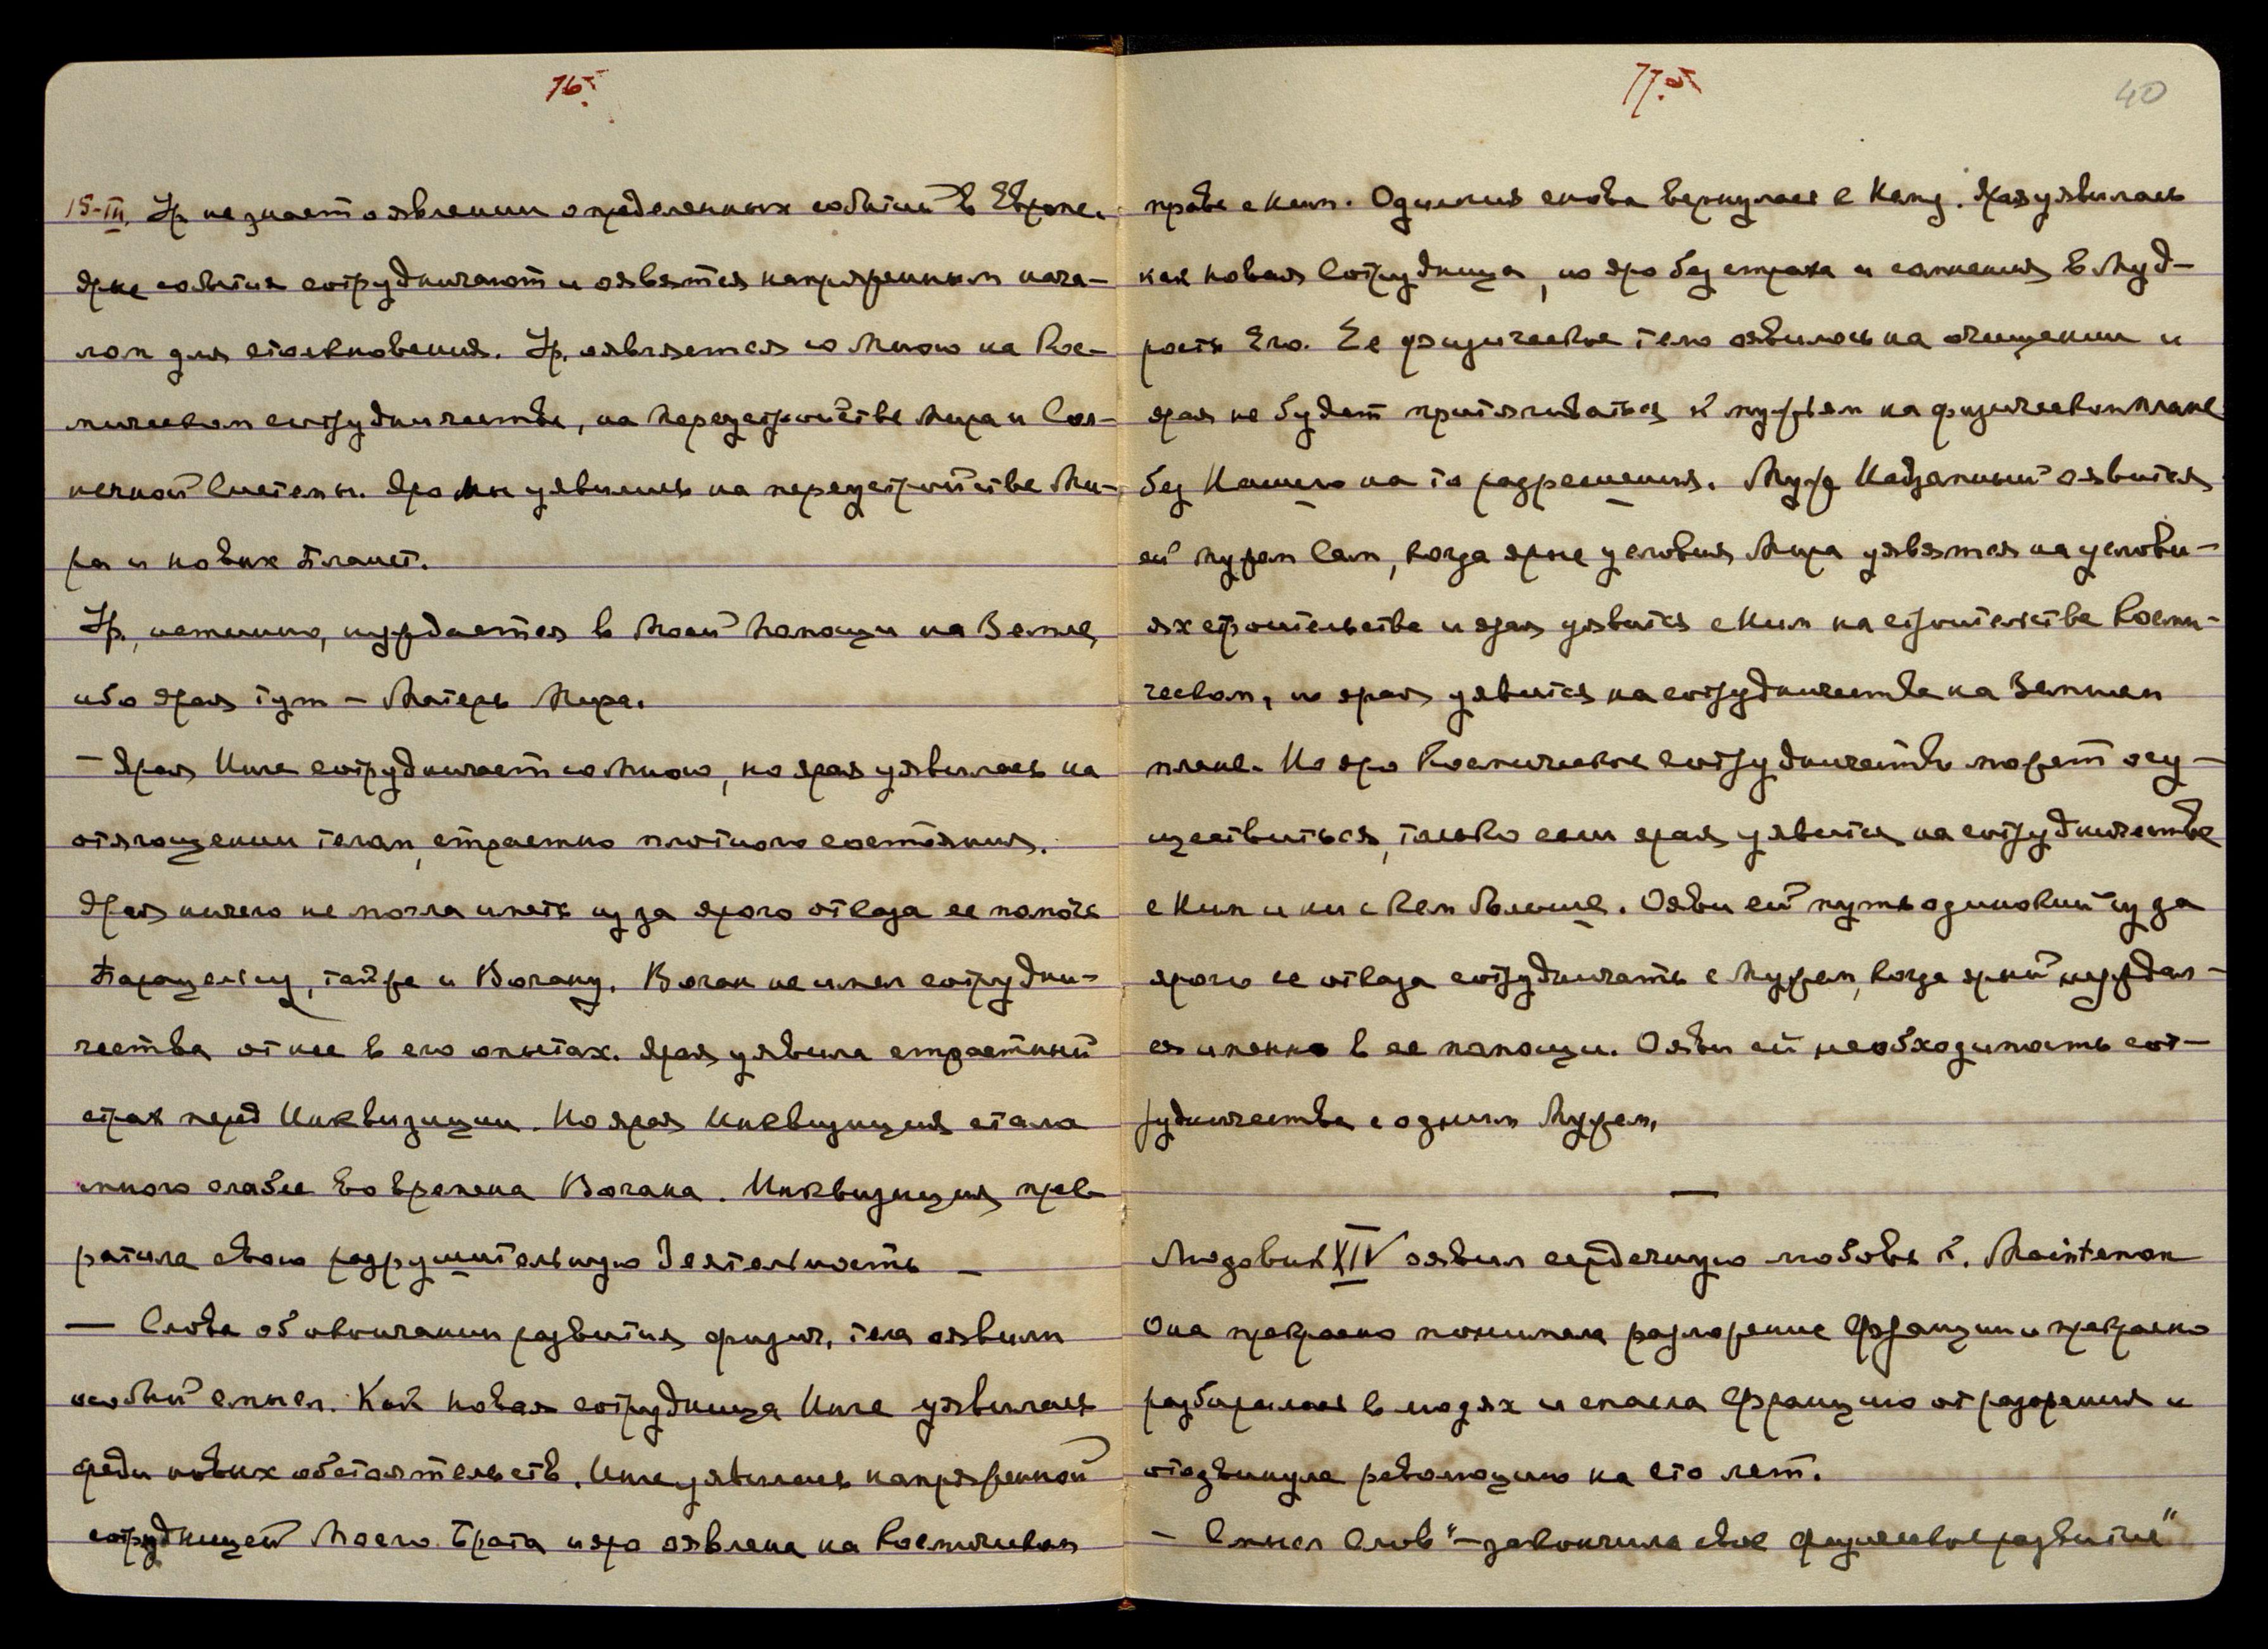 76
15-III. Ур. не знает о явлении определенных событий в Европе.
Ярые события сотрудничают и оявятся напряженным нача-
лом для столкновения. Ур. оявляется со Мною на Кос-
мическом сотрудничестве, на переустройстве Мира и Сол-
нечной Системы. Яро Мы уявились на переустройстве Ми-
ра и новых планет.
Ур., истинно, нуждается в Моей помощи на Земле,
ибо ярая тут – Матерь Мира.
– Ярая Инге сотрудничает со Мною, но ярая уявилась на
отягощении телом, страстно плотного состояния.
Ярая ничего не могла иметь из за ярого отказа ее помочь
Парацельсу, также и Вогану. Воган не имел сотрудни-
чества от нее в его опытах. Ярая уявила страстный
страх перед Инквизиции. Но ярая Инквизиция стала
много слабее во времена Вогана. Инквизиция прек-
ратила свою разрушительную деятельность –
– Слова об окончании развития физич. тела оявили
особый смысл. Как новая сотрудница Инге уявилась
среди новых обстоятельств. Инге уявилась напряженной
сотрудницей Моего Брата и яро оявлена на Космическом
77
40
праве с Ним. Одилия снова вернулась к Нему. Ярая уявилась
как новая Сотрудница, но яро без страха и сомнения в Муд-
рость Его. Ее физическое тело оявилось на очищении и
ярая не будет притягиваться к мужьям на физическом плане
без Нашего на то разрешения. Муж Названный оявится
ей мужем Сам, когда ярые условия Мира уявятся на услови-
ях строительства и ярая уявится с Ним на строительстве Косми-
ческом, но ярая уявится на сотрудничестве на Земном
плане. Но яро Космическое сотрудничество может осу-
ществиться, только если ярая уявится на сотрудничестве
с Ним и ни с кем больше. Ояви ей путь одинокий из за
ярого ее отказа сотрудничать с Мужем, когда ярый нуждал-
ся именно в ее помощи. Ояви ей необходимость сот-
рудничества с одним Мужем.
—
Людовик XIV оявил сердечную любовь к. Maintenon
Она прекрасно понимала разложение Франции и прекрасно
разбиралась в людях и спасла Францию от разорения и
отодвинула революцию на сто лет.
– Смысл Слов "– закончила свое физическое развитие"